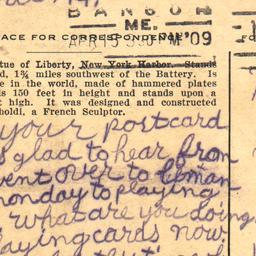 BANGOR
ME.
ACE FOR CORRESPONDENCE
APR 15 3 30 PM '09
tue of Liberty, New York Harbor. Stands
d, 1¾ miles southwest of the Battery. Is
e in the world, made of hammered plates
s 150 feet in height and stands upon a
t high. It was designed and constructed
holdi, a French Sculptor.
your postcard
s glad to hear from
went over to
monday to playing
what are you doing
aying cards now